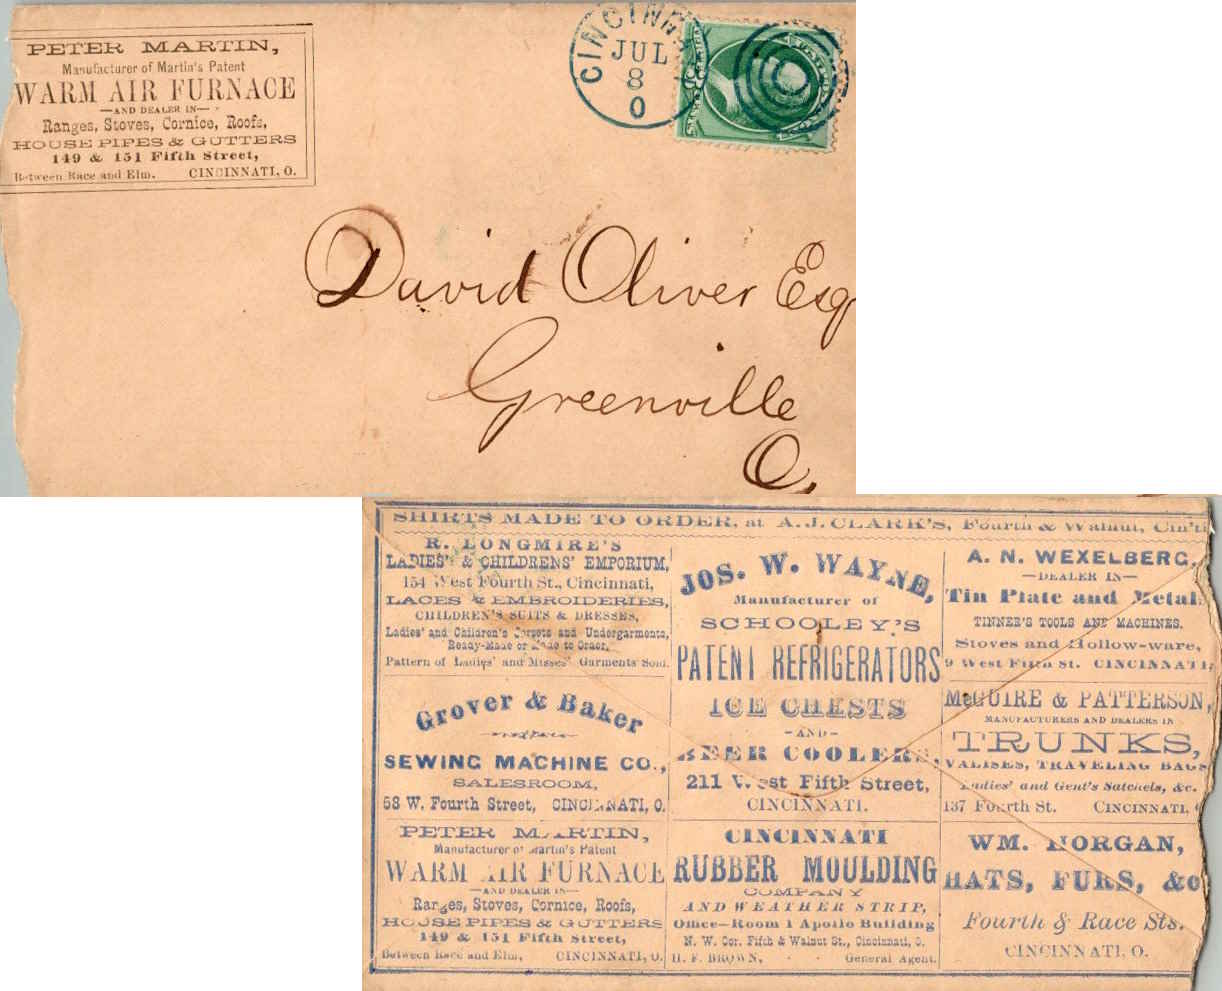 PETER MARTIN,
Manufacturer of Martin's Patent
WARM AIR FURNACE
—AND DEALER IN—
Ranges, Stoves, Cornice, Roofs,
HOUSE PIPES & GUTTERS
149 & 151 Fifth Street,
Between Race and Elm. CINCINNATI, O.
CINCINN
JUL
8
O
David Oliver Esq
Greenville
O.
SHIRTS MADE TO ORDER, at A. J. CLARK'S, Fourth & Walnut, Cin'ti
R. LONGMIRE'S
LADIES' & CHILDRENS' EMPORIUM,
154 West Fourth St., Cincinnati,
LACES & EMBROIDERIES,
CHILDREN'S SUITS & DRESSES,
Ladies' and Children's Corsets and Undergarments,
Ready-Made or Made to Order.
Pattern of Ladies' and Misses' Garments Sold.
Grover & Baker
SEWING MACHINE CO.,
SALESROOM,
58 W. Fourth Street, CINCINNATI, O.
PETER MARTIN,
Manufacturer of Martin's Patent
WARM AIR FURNACE
—AND DEALER IN—
Ranges, Stoves, Cornice, Roofs,
HOUSE PIPES & GUTTERS
149 & 151 Fifth Street,
Between Race and Elm, CINCINNATI, O.
JOS. W. WAYNE,
Manufacturer of
SCHOOLEY'S
PATENT REFRIGERATORS
ICE CHESTS
—AND—
BEER COOLERS,
211 West Fifth Street,
CINCINNATI.
CINCINNATI
RUBBER MOULDING
COMPANY
AND WEATHER STRIP,
Office—Room 1 Apollo Building
N. W. Cor. Fifth & Walnut St., Cincinnati, O.
H. F. BROWN, General Agent.
A. N. WEXELBERG,
—DEALER IN—
Tin Plate and Metal,
TINNER'S TOOLS AND MACHINES.
Stoves and Hollow-ware,
9 West Fifth St. CINCINNATI,
McGUIRE & PATTERSON,
MANUFACTURERS AND DEALERS IN
TRUNKS,
VALISES, TRAVELING BAGS
Ladies' and Gent's Satchels, &c.
137 Fourth St. CINCINNATI,
WM. MORGAN,
HATS, FURS, &c
Fourth & Race Sts.
CINCINNATI, O.